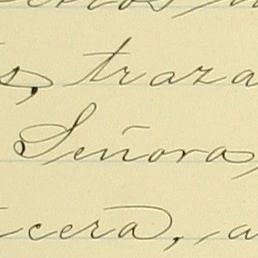 s, traza
Señora,
cera, a